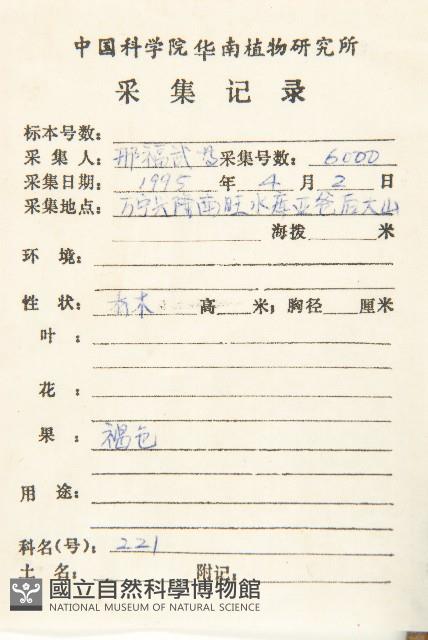 中国科学院华南植物研究所
采集记录
标本号数：
采集人：邢福武 采集号数：6000
采集日期：1995年4月2日
采集地点：万宁兴隆南旺水库亚爸后大山
海拨 米
环境：
性状：乔木 高 米；胸径 厘米
叶：
花：
果：褐色
用途：
科名(号)：221
土名： 附记：
國立自然科學博物館
NATIONAL MUSEUM OF NATURAL SCIENCE